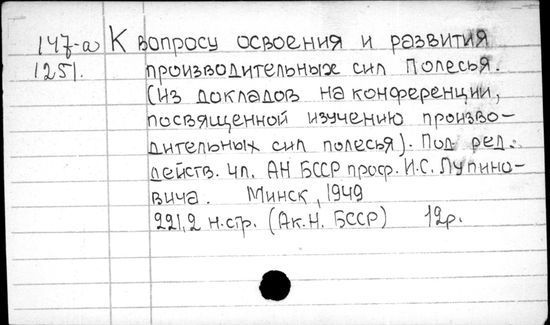 147-а К вопросу освоения и развития
1251. производительных сил Полесья.
(из докладов на конференции,
посвященной изучению произво-
дительных сил полесья). Под ред.
действ. чл. АН БССР проф. И.С. Лупино-
вича. Минск, 1949
221,2 н.стр. (Ак.Н. БССР) 12р.